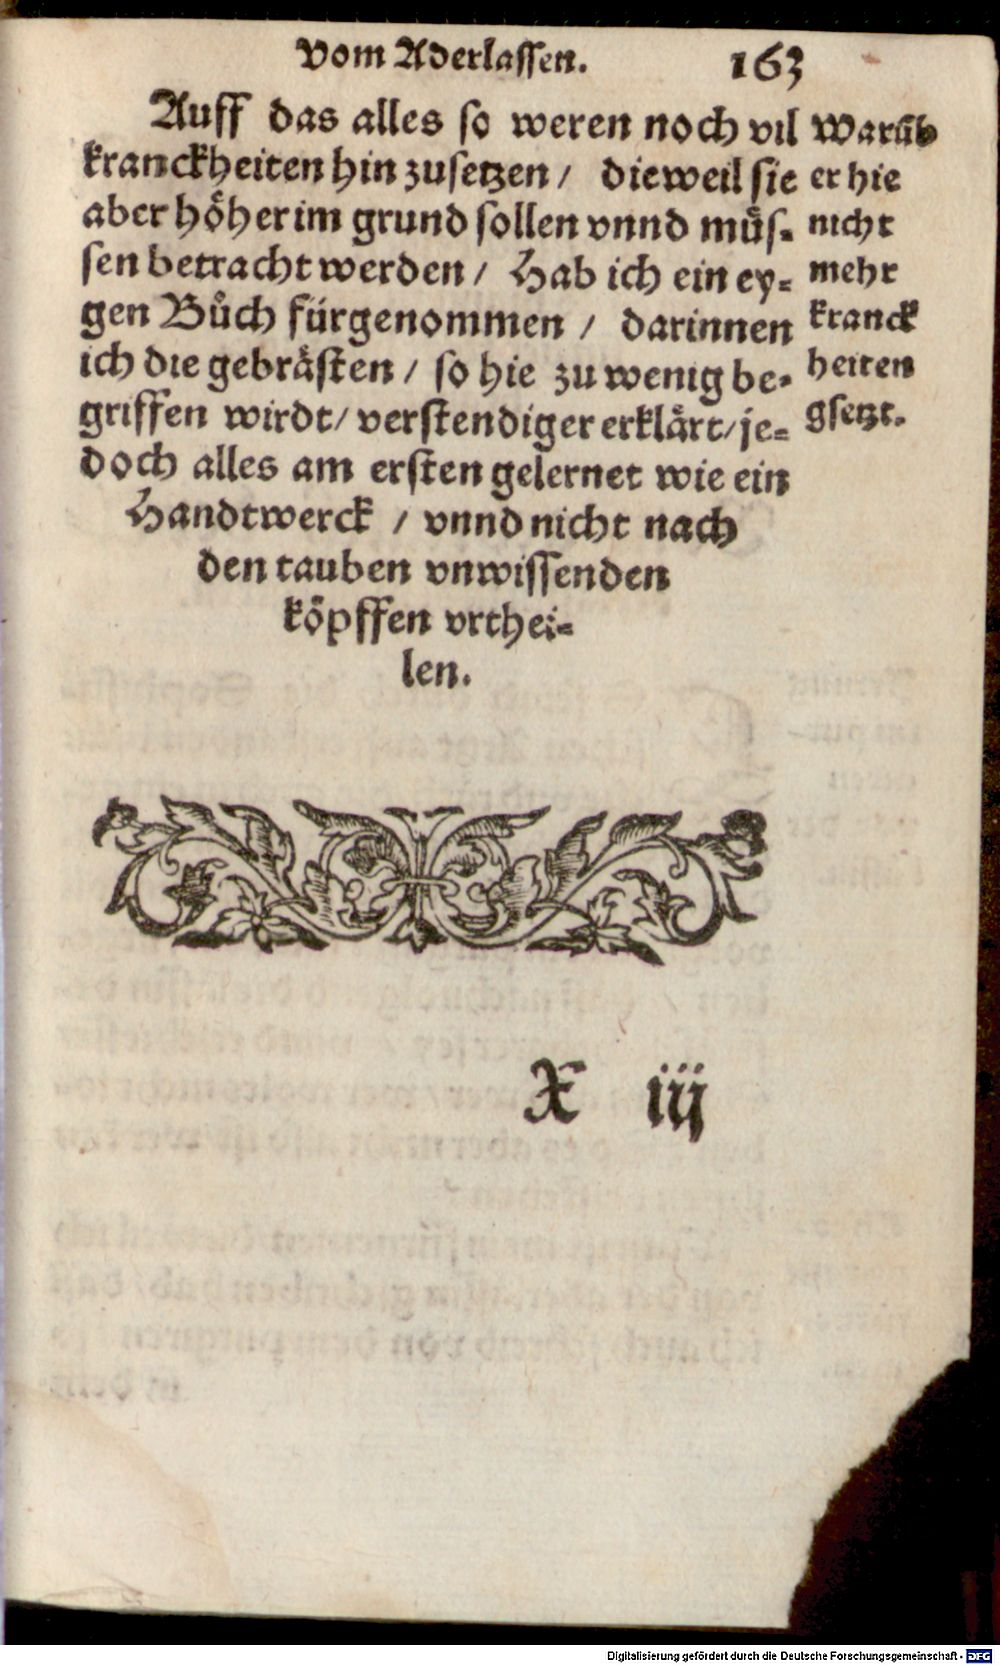 Vom Aderlassen. 163
Auff das alles so weren noch vil
kranckheiten hin zusetzen / dieweil sie
aber hoͤher im grund sollen vnnd muͤs-
sen betracht werden / Hab ich ein ey-
gen Buͦch fürgenommen / darinnen
ich die gebraͤsten / so hie zu wenig be-
griffen wirdt / verstendiger erklaͤrt / je-
doch alles am ersten gelernet wie ein
Handtwerck / vnnd nicht nach
den tauben vnwissenden
koͤpffen vrthei-
len.
Warūb
er hie
nicht
mehr
kranck
heiten
gsetzt.
X iij
Digitalisierung gefördert durch die Deutsche Forschungsgemeinschaft - DFG